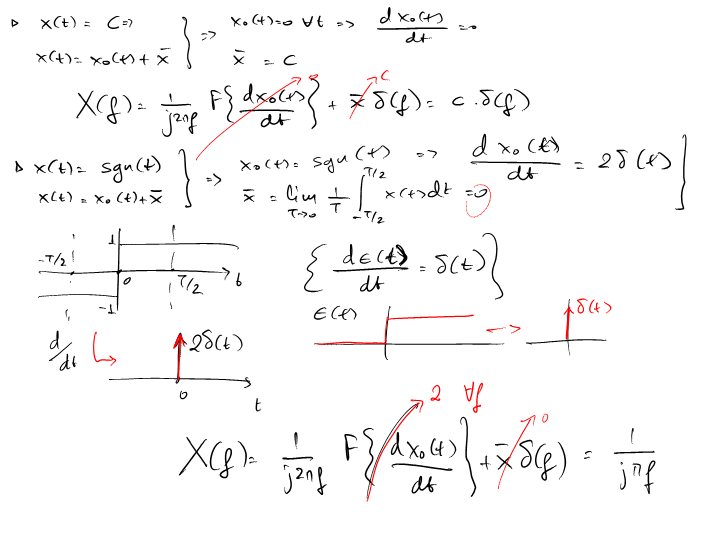 ▷ x(t) = C => } => x₀(t)=0 ∀t => dx₀(t)/dt = 0
x(t) = x₀(t) + x̄ x̄ = C
X(f) = 1/j2πf F{dx₀(t)/dt} + x̄ δ(f) = C · δ(f)
0 C
▷ x(t) = sgn(t) } => x₀(t) = sgn(t) => d x₀(t)/dt = 2δ(t) ]
x(t) = x₀(t) + x̄ x̄ = lim T→∞ 1/T ∫ -T/2 T/2 x(t)dt = 0
1 -T/2 0 T/2 t -1
{ dε(t)/dt = δ(t) }
ε(t) -> δ(t)
d/dt 2δ(t)
0 t
2 ∀f 0
X(f) = 1/j2πf F{dx₀(t)/dt} + x̄ δ(f) = 1/jπf